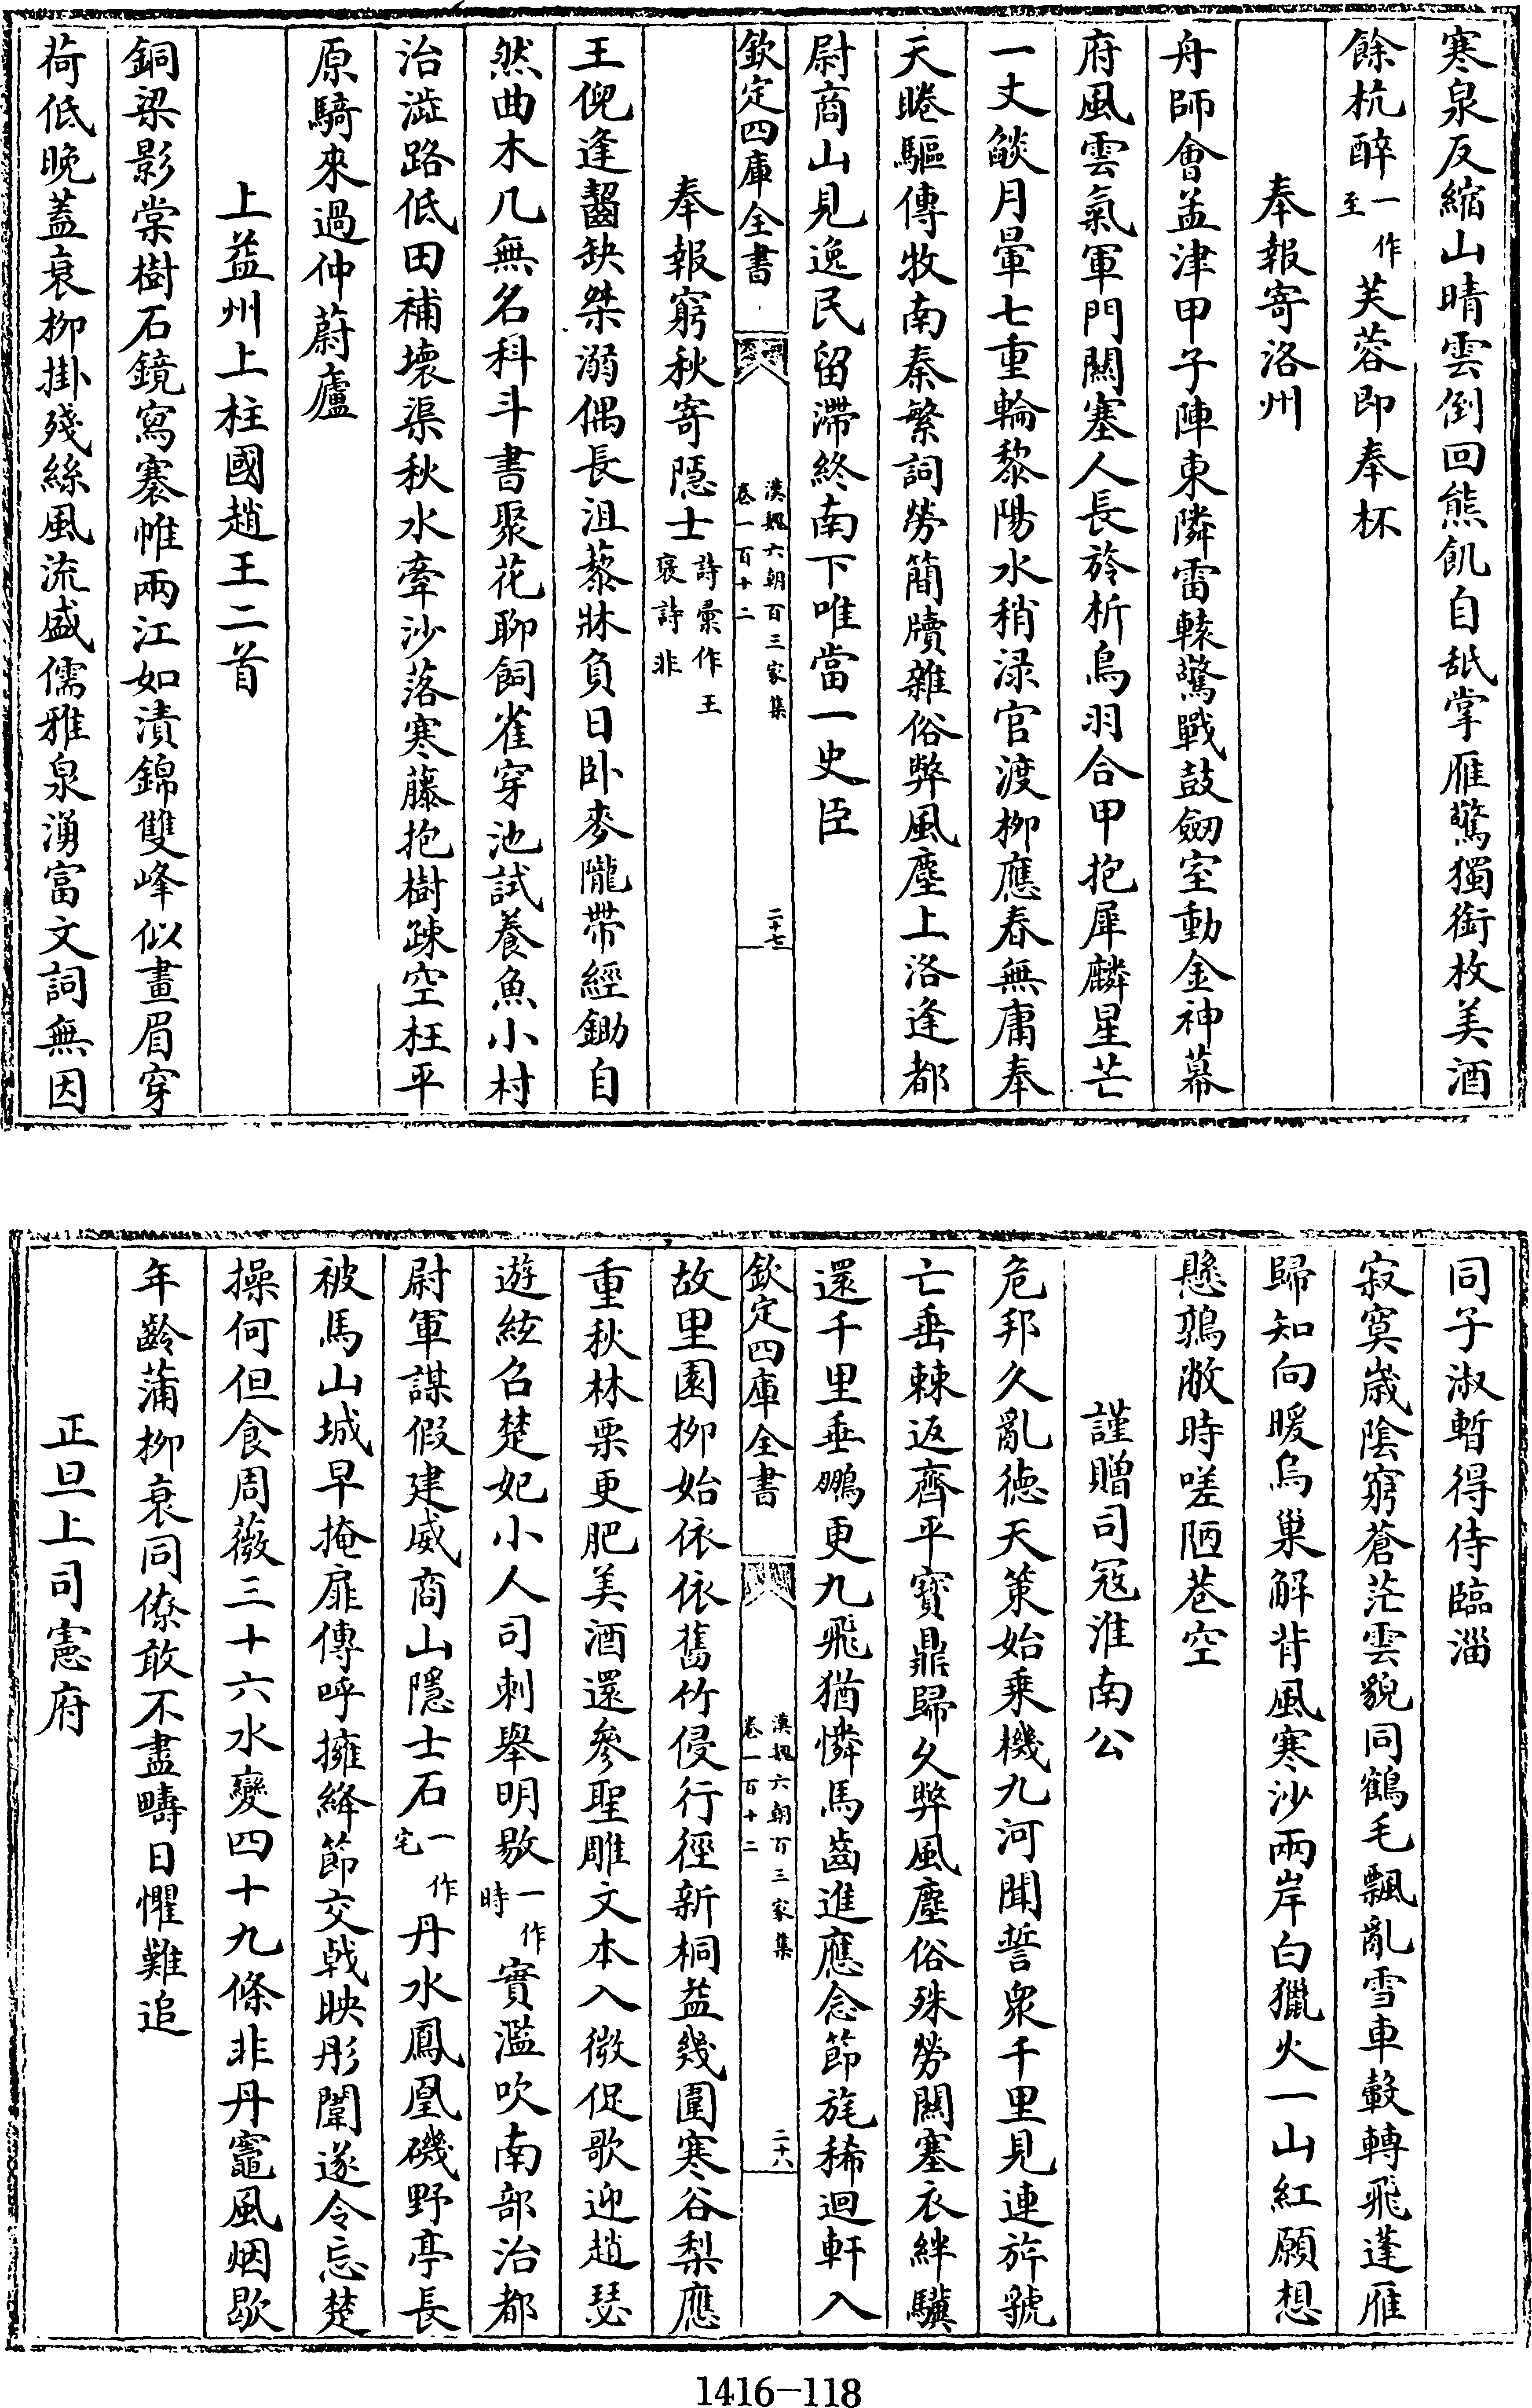 寒泉反縮山晴雲倒回熊飢自舐掌雁驚獨銜枚美酒
餘杭醉一作至芙蓉即奉杯
奉報寄洛州
舟師會孟津甲子陣東隣雷轅驚戰鼓劒室動金神幕
府風雲氣軍門關塞人長旍析鳥羽合甲抱犀麟星芒
一丈燄月暈七重輪黎陽水稍渌官渡柳應春無庸奉
天睠驅傳牧南秦繁詞勞簡牘雜俗弊風塵上洛逢都
尉商山見逸民留滯終南下唯當一史臣
欽定四庫全書
漢魏六朝百三家集
卷一百十二
二十七
奉報窮秋寄隱士詩彙作王褒詩非
王倪逢齧缺桀溺偶長沮藜牀負日卧麥隴帶經鋤自
然曲木几無名科斗書聚花聊飼雀穿池試養魚小村
治澁路低田補壞渠秋水牽沙落寒藤抱樹疎空枉平
原騎來過仲蔚廬
上益州上柱國趙王二首
銅梁影棠樹石鏡寫褰帷兩江如漬錦雙峰似畫眉穿
荷低晚蓋衰柳掛殘絲風流盛儒雅泉湧富文詞無因
同子淑暫得侍臨淄
寂寞歲陰窮蒼茫雲貌同鶴毛飄亂雪車轂轉飛蓬雁
歸知向暖烏巢解背風寒沙兩岸白獵火一山紅願想
懸鶉敝時嗟陋巷空
謹贈司冦淮南公
危邦久亂德天策始乗機九河聞誓衆千里見連旍虢
亡垂棘返齊平寳鼎歸久弊風塵俗殊勞關塞衣絆驥
還千里垂鵬更九飛猶憐馬齒進應念節旄稀迴軒入
欽定四庫全書
漢魏六朝百三家集
卷一百十二
二十八
故里園柳始依依舊竹侵行徑新桐益幾圍寒谷梨應
重秋林栗更肥美酒還參聖雕文本入微促歌迎趙瑟
遊絃召楚妃小人司刺舉明敭一作時實濫吹南部治都
尉軍謀假建威商山隱士石一作宅丹水鳳凰磯野亭長
被馬山城早掩扉傳呼擁絳節交戟映彤闈遂令忘楚
操何但食周薇三十六水變四十九條非丹竈風烟歇
年齡蒲柳衰同僚敢不盡疇日懼難追
正旦上司憲府
1416-118